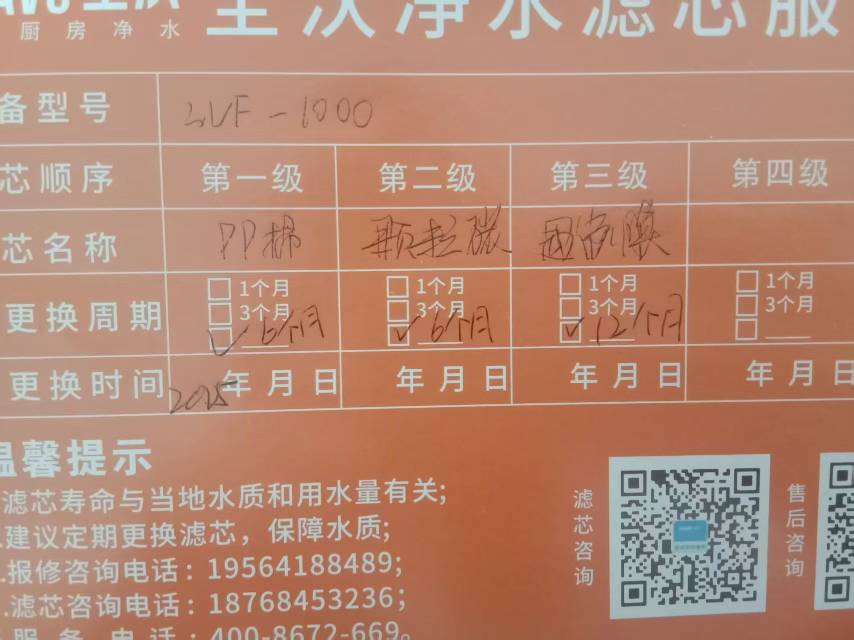 厨房净水
净水滤芯服
备型号 UF-1000
芯顺序 第一级 第二级 第三级 第四级
芯名称 PP棉 颗粒碳 超滤膜
1个月 1个月 1个月 1个月
更换周期 3个月 3个月 3个月 3个月
6个月 6个月 12个月
更换时间 2025年月日 年月日 年月日 年月日
温馨提示
滤芯寿命与当地水质和用水量有关;
建议定期更换滤芯，保障水质;
报修咨询电话：19564188489;
滤芯咨询电话：18768453236;
服务电话：400-8672-669。
滤芯咨询
售后咨询